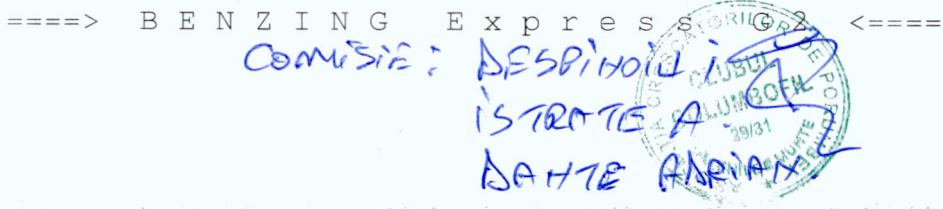 ====> B E N Z I N G E x p r e s s G2 <====
COMISIE: DESPINOIU I
ISTRATE A.
DANTE ADRIAN.
CLUBUL
COLUMBOFIL
29/31